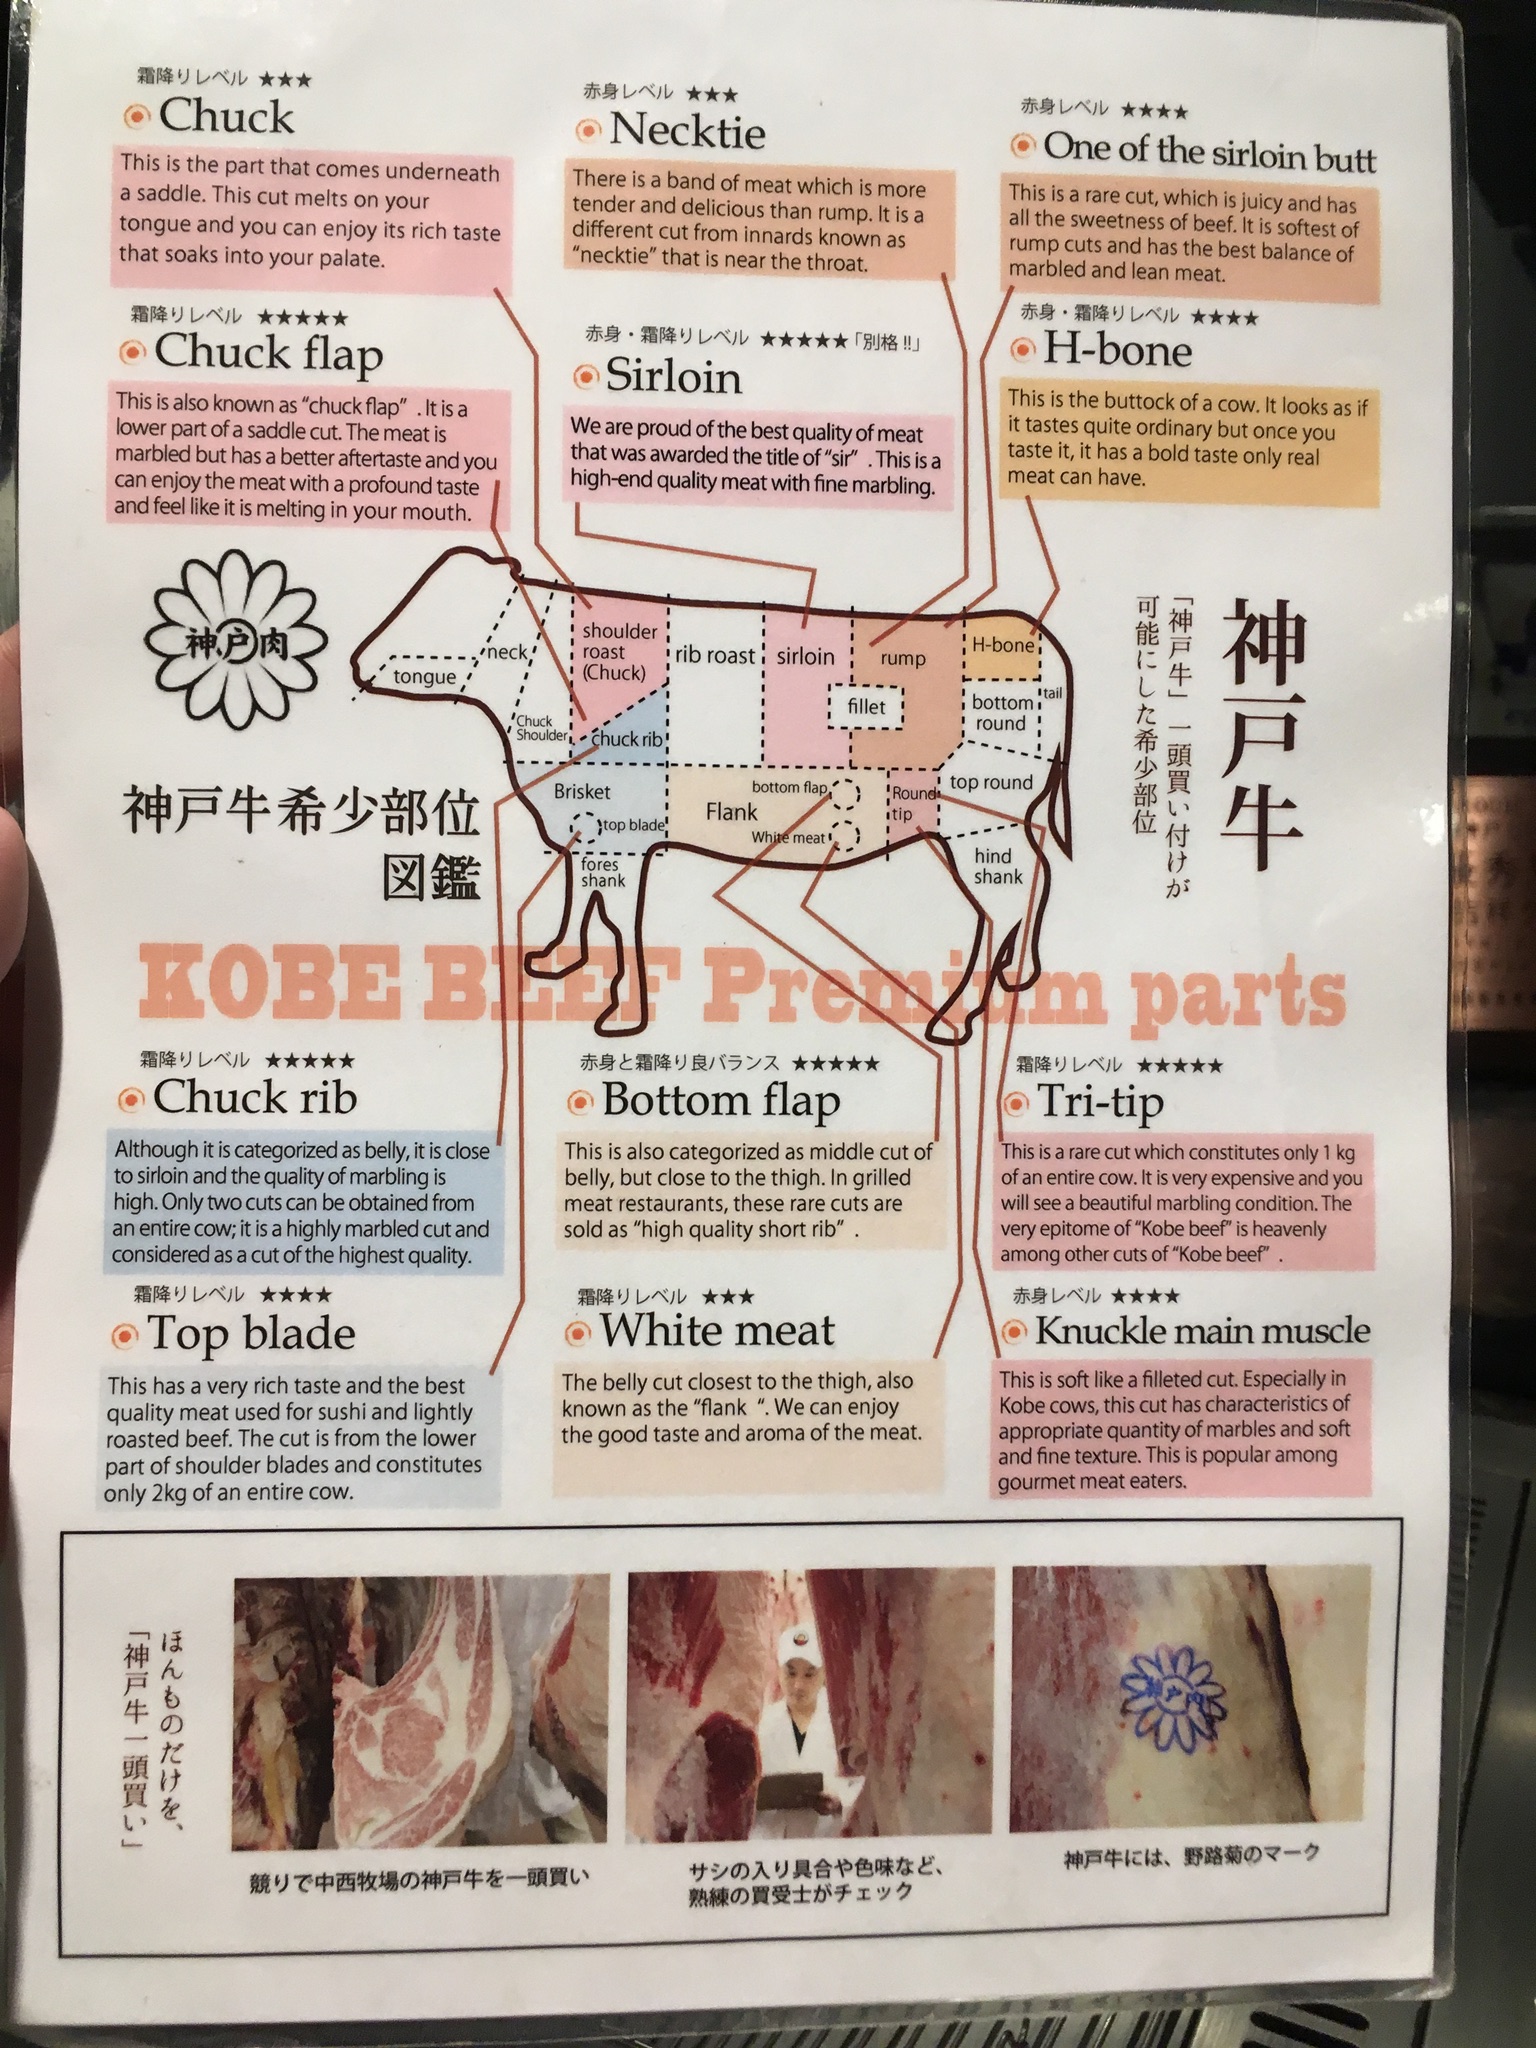 霜降りレベル ★★★
Chuck
This is the part that comes underneath
a saddle. This cut melts on your
tongue and you can enjoy its rich taste
that soaks into your palate.
赤身レベル ★★★
Necktie
There is a band of meat which is more
tender and delicious than rump. It is a
different cut from innards known as
"necktie" that is near the throat.
赤身レベル ★★★★
One of the sirloin butt
This is a rare cut, which is juicy and has
all the sweetness of beef. It is softest of
rump cuts and has the best balance of
marbled and lean meat.
霜降りレベル ★★★★★
Chuck flap
This is also known as "chuck flap" . It is a
lower part of a saddle cut. The meat is
marbled but has a better aftertaste and you
can enjoy the meat with a profound taste
and feel like it is melting in your mouth.
赤身・霜降りレベル ★★★★★「別格!!」
Sirloin
We are proud of the best quality of meat
that was awarded the title of "sir" . This is a
high-end quality meat with fine marbling.
赤身・霜降りレベル ★★★★
H-bone
This is the buttock of a cow. It looks as if
it tastes quite ordinary but once you
taste it, it has a bold taste only real
meat can have.
神戸肉
神戸牛希少部位
図鑑
tongue
neck
Chuck
Shoulder
shoulder
roast
(Chuck)
chuck rib
rib roast
sirloin
rump
fillet
H-bone
bottom
round
tail
top round
Brisket
top blade
fores
shank
Flank
bottom flap
White meat
Round
tip
hind
shank
神戸牛
「神戸牛」一頭買い付けが
可能にした希少部位
KOBE BEEF Premium parts
霜降りレベル ★★★★★
Chuck rib
Although it is categorized as belly, it is close
to sirloin and the quality of marbling is
high. Only two cuts can be obtained from
an entire cow; it is a highly marbled cut and
considered as a cut of the highest quality.
赤身と霜降り良バランス ★★★★★
Bottom flap
This is also categorized as middle cut of
belly, but close to the thigh. In grilled
meat restaurants, these rare cuts are
sold as "high quality short rib" .
霜降りレベル ★★★★★
Tri-tip
This is a rare cut which constitutes only 1 kg
of an entire cow. It is very expensive and you
will see a beautiful marbling condition. The
very epitome of "Kobe beef" is heavenly
among other cuts of "Kobe beef" .
霜降りレベル ★★★★
Top blade
This has a very rich taste and the best
quality meat used for sushi and lightly
roasted beef. The cut is from the lower
part of shoulder blades and constitutes
only 2kg of an entire cow.
霜降りレベル ★★★
White meat
The belly cut closest to the thigh, also
known as the "flank ". We can enjoy
the good taste and aroma of the meat.
赤身レベル ★★★★
Knuckle main muscle
This is soft like a filleted cut. Especially in
Kobe cows, this cut has characteristics of
appropriate quantity of marbles and soft
and fine texture. This is popular among
gourmet meat eaters.
ほんものだけを、
「神戸牛一頭買い」
競りで中西牧場の神戸牛を一頭買い
サシの入り具合や色味など、
熟練の買受士がチェック
神戸牛には、野路菊のマーク